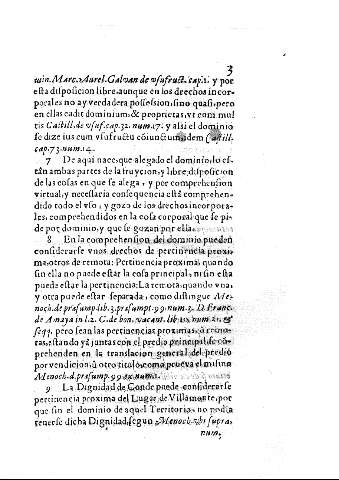 3
uin. Marc. Aurel. Galuan de vsufruct. cap.1. y por
esta disposicion libre, aunque en los drechos incor-
porales no ay verdadera possession, sino quasi, pero
en ellas cadit dominium, & proprietas, vt com mul
tis Castill. de vsuf. cap. 32. num. 17. y assi el dominio
se dize ius cum vsufructu coiunctum idem Castill.
cap. 73. num. 14.
7 De aqui nace, que alegado el dominio, lo es-
tàn ambas partes de la fruycion, y libre disposicion
de las cosas en que se alega, y por comprehension
virtual, y necessaria consequencia està comprehen-
dido todo el vso, y gozo de los drechos incorpora-
les, comprehendidos en la cosa corporal que se pi-
de por dominio, y que se gozan por ella.
8 En la comprehension del dominio pueden
considerarse vnos drechos de pertinencia proxi-
ma, otros de remota: Pertinencia proxima, quando
sin ella no puede estar la cosa principal, ni sin esta
puede estar la pertinencia: La remota, quando vna,
y otra puede estar separada, como distingue Me-
noch. de præsump. lib. 3. præsumpt. 99. num. 3. D. Franc.
de Amaya in l. 2. C. de bon. vacant. lib. 10. num. 21. &
seqq. pero sean las pertinencias proximas, ò remo-
tas, estando yà juntas con el predio principal se cò-
prehenden en la translacion general del predio
por vendicion, ù otro titulo, como prueva el mismo
Menoch. d. præsump. 99. ex num.
9 La Dignidad de Conde puede considerarse
pertinencia proxima del Lugar de Villamonte, por
que sin el dominio de aquel Territorio, no podia
tenerse dicha Dignidad, segun Menoch. vbi supra,
num.